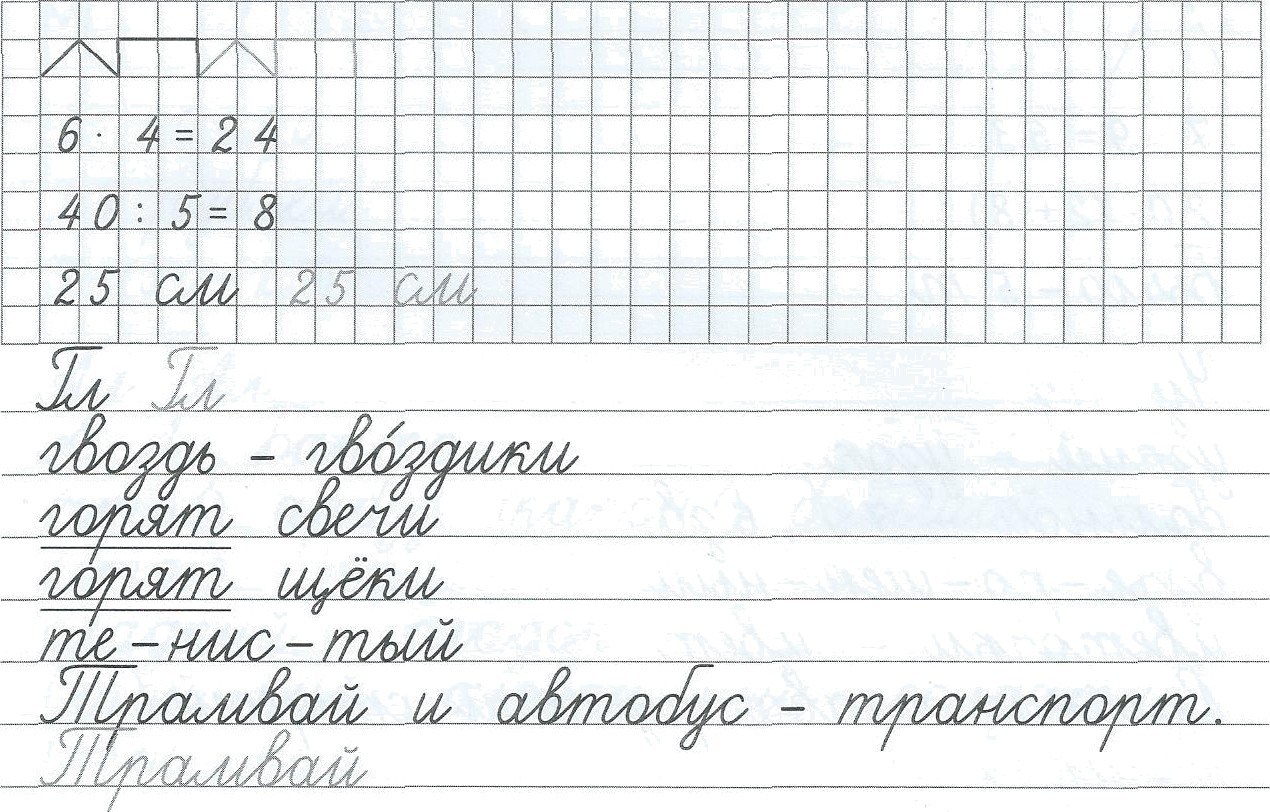 6 · 4 = 24
40 : 5 = 8
25 см 25 см
Гл Гл
гвоздь – гво́здики
горят свечи
горят щёки
те – нис – тый
Трамвай и автобус – транспорт.
Трамвай